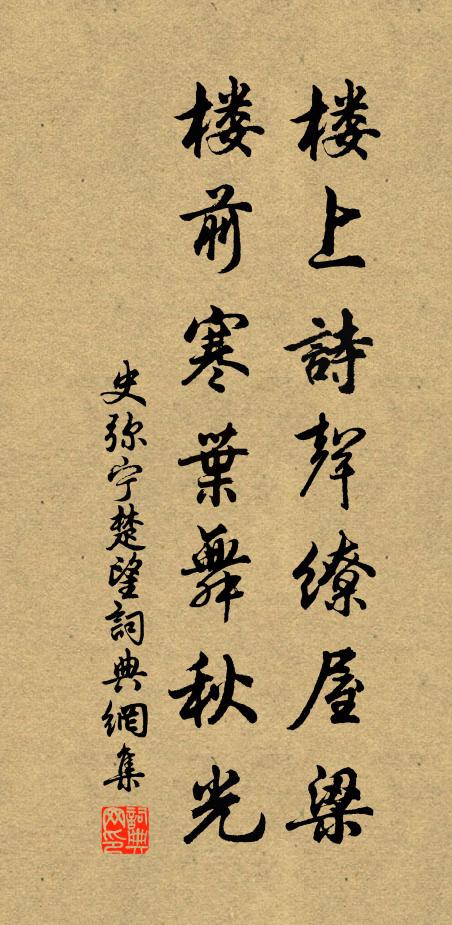 楼上詩聲繚屋梁
楼前寒葉舞秋光
史弥宁楚望詞典網集
詞典網印